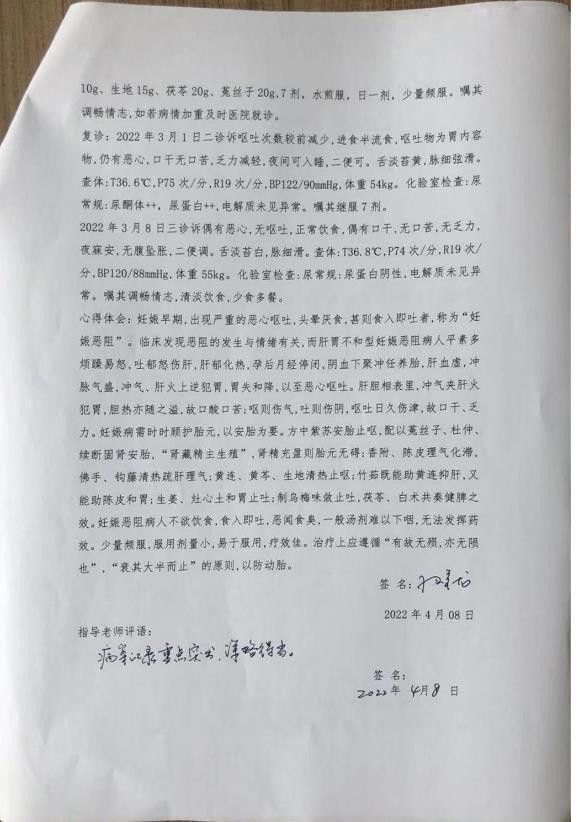 10g、生地 15g、茯苓 20g、菟丝子 20g,7 剂，水煎服，日一剂，少量频服。嘱其
调畅情志,如若病情加重及时医院就诊。
复诊：2022 年 3 月 1 日二诊诉呕吐次数较前减少,进食半流食,呕吐物为胃内容
物,仍有恶心,口干无口苦,乏力减轻,夜间可入睡,二便可。舌淡苔黄,脉细弦滑。
查体:T36.6℃,P75 次/分,R19 次/分,BP122/90mmHg,体重 54kg。化验室检查:尿
常规:尿酮体++，尿蛋白++,电解质未见异常。嘱其继服 7 剂。
2022 年 3 月 8 日三诊诉偶有恶心,无呕吐,正常饮食,偶有口干,无口苦,无乏力,
夜寐安,无腹坠胀,二便调。舌淡苔白,脉细滑。查体:T36.8℃,P74 次/分,R19 次/
分,BP120/88mmHg,体重 55kg。化验室检查:尿常规:尿蛋白阴性,电解质未见异
常。嘱其调畅情志,清淡饮食,少食多餐。
心得体会：妊娠早期,出现严重的恶心呕吐,头晕厌食,甚则食入即吐者,称为“妊
娠恶阻”。临床发现恶阻的发生与情绪有关,而肝胃不和型妊娠恶阻病人平素多
烦躁易怒,吐郁怒伤肝,肝郁化热,孕后月经停闭,阴血下聚冲任养胎,肝血虚,冲
脉气盛,冲气、肝火上逆犯胃,胃失和降,以至恶心呕吐。肝胆相表里,冲气夹肝火
犯胃,胆热亦随之溢,故口酸口苦;呕则伤气,吐则伤阴,呕吐日久伤津,故口干、乏
力。妊娠病需时时顾护胎元,以安胎为要。方中紫苏安胎止呕,配以菟丝子、杜仲、
续断固肾安胎，“肾藏精主生殖”,肾精充盈则胎元无碍;香附、陈皮理气化滞,
佛手、钩藤清热疏肝理气;黄连、黄芩、生地清热止呕;竹茹既能助黄连抑肝,又
能助陈皮和胃;生姜、灶心土和胃止吐;制乌梅味敛止吐,茯苓、白术共奏健脾之
效。妊娠恶阻病人不欲饮食,食入即吐,恶闻食臭,一般汤剂难以下咽,无法发挥药
效。少量频服,服用剂量小,易于服用,疗效佳。治疗上应遵循“有故无殒,亦无陨
也”,“衰其大半而止”的原则,以防动胎。
签 名:
2022 年 4 月 08 日
指导老师评语:
病案记录重点突出、详略得当。
签 名:
2022年 4月8 日